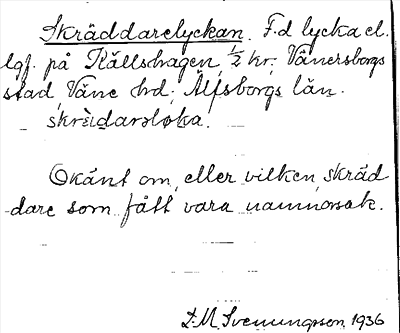 Skräddarelyckan. F.d lycka el.
lgf. på Källshagen, 1/2 kr; Vänersborgs
stad, Väne hd; Älfsborgs län.
skrèidarsloka.
Okänt om, eller vilken, skräd
dare som fått vara namnorsak.
D. M. Svenungsson 1936